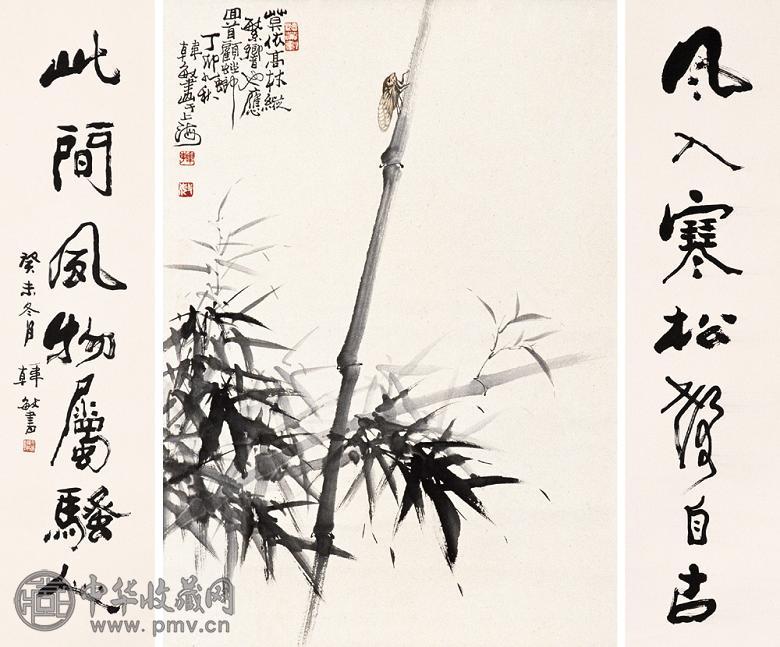 风入寒松聲自古
莫依高枝縱
繁響也應
回首顧螳螂
丁卯秋
韓敏畫于上海
此間風物屬騷人
癸未冬月 韓敏書
中华收藏网
www.pmv.cn